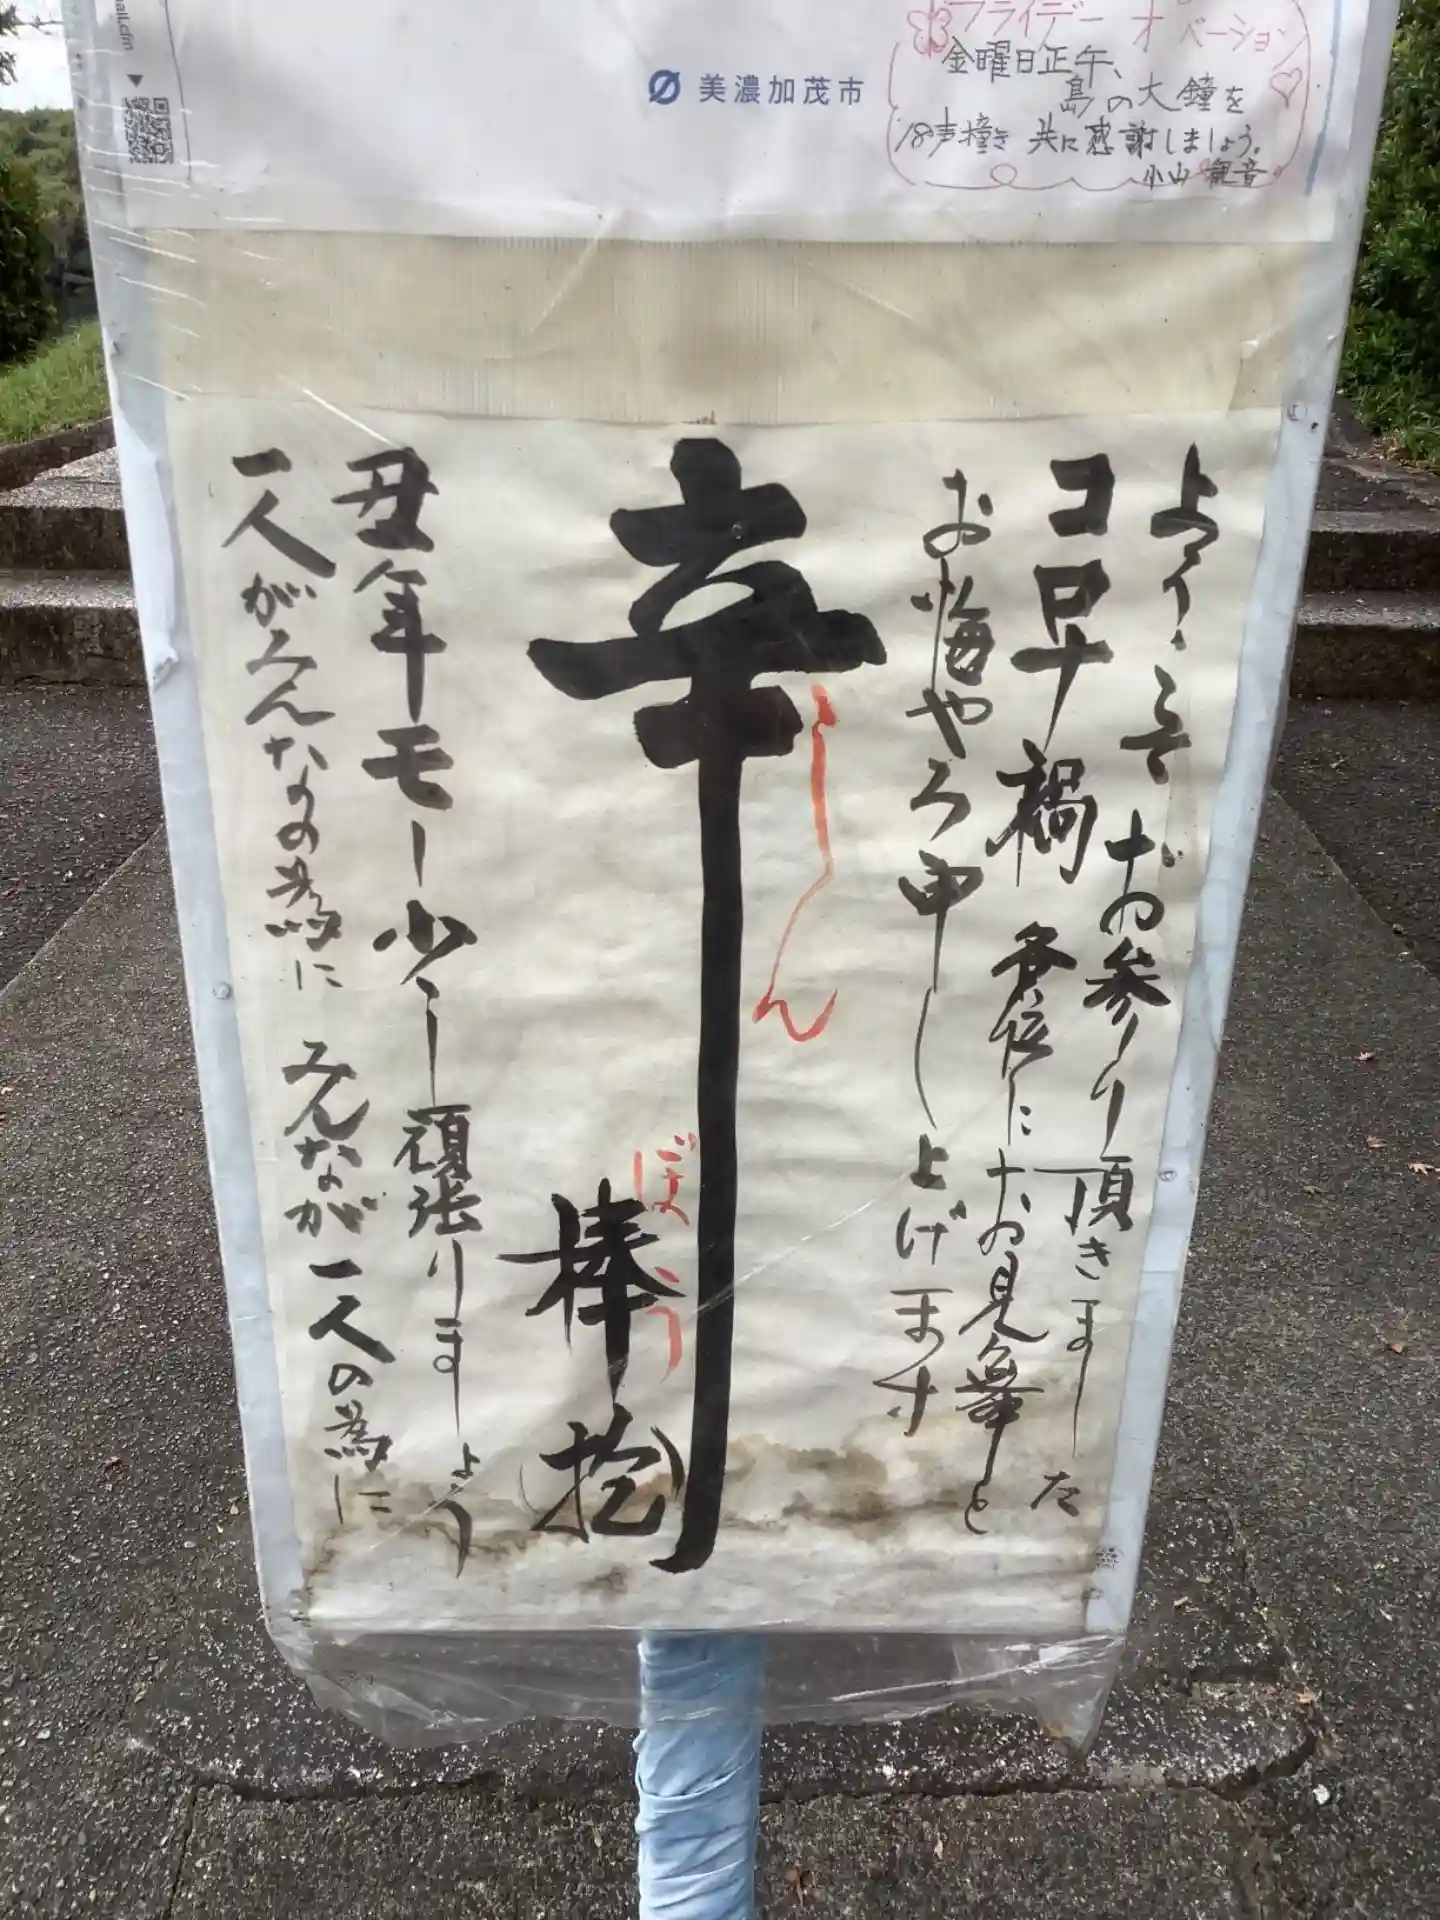 mail.cfm
美濃加茂市
フライデー オベーション
金曜日正午、
島の大鐘を
18声撞き 共に感謝しましょう。
小山観音
ようこそお参り頂きました
コロナ禍 各位にお見舞と
お悔やみ申し上げます
幸
しん
ぼう
棒
(抱)
丑年モー少し頑張りましょう
一人がみんなの為に みんなが一人の為に